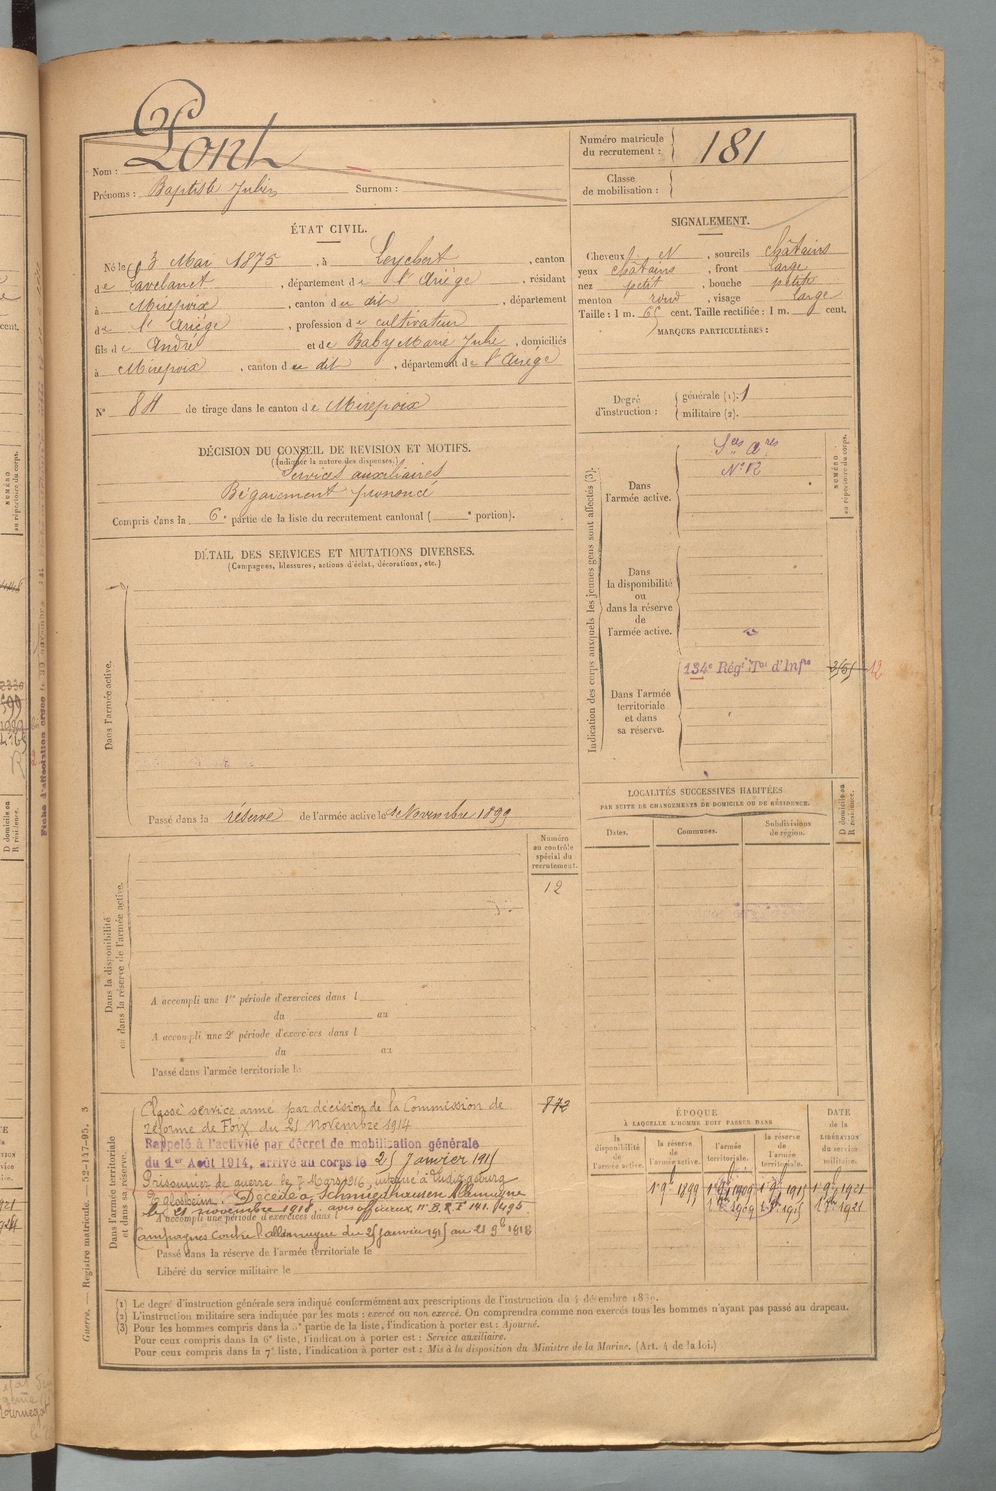 Nom : Pont
Prénoms : Baptiste Julien Surnom :
Numéro matricule du recrutement : 181
Classe de mobilisation :
ÉTAT CIVIL.
Né le 3 Mai 1875, à Leychert, canton
de Lavelanet, département de l'Ariège, résidant
à Mirepoix, canton du dit, département
de l'Ariège, profession de cultivateur
fils de André et de Baby Marie Julie, domiciliés
à Mirepoix, canton du dit, département de l'Ariège
N° 84 de tirage dans le canton de Mirepoix
SIGNALEMENT.
Cheveux N, sourcils châtains
yeux châtains, front large
nez petit, bouche petite
menton rond, visage large
Taille : 1 m. 65 cent. Taille rectifiée : 1 m. cent.
MARQUES PARTICULIÈRES :
Degré d'instruction : générale (1). 1
militaire (2).
DÉCISION DU CONSEIL DE REVISION ET MOTIFS.
(Indiquer la nature des dispenses.)
Services auxiliaires
Bégaiement prononcé
Compris dans la 6e partie de la liste du recrutement cantonal ( e portion).
DÉTAIL DES SERVICES ET MUTATIONS DIVERSES.
(Campagnes, blessures, actions d'éclat, décorations, etc.)
Dans l'armée active.
Passé dans la réserve de l'armée active le 1er Novembre 1899
Indication des corps auxquels les jeunes gens sont affectés (3).
NUMÉRO au répertoire du corps.
Dans l'armée active.
Ses ares
N° 12
Dans la disponibilité ou dans la réserve de l'armée active.
Dans l'armée territoriale et dans sa réserve.
134e Régt Tal d'Infie
12
LOCALITÉS SUCCESSIVES HABITÉES
PAR SUITE DE CHANGEMENTS DE DOMICILE OU DE RÉSIDENCE.
Dates.
Communes.
Subdivisions de région.
D domicile ou R résidence.
Numéro au contrôle spécial du recrutement.
12
Dans la disponibilité ou dans la réserve de l'armée active.
A accompli une 1re période d'exercices dans l
du au
A accompli une 2e période d'exercices dans l
du au
Passé dans l'armée territoriale le
Dans l'armée territoriale et dans sa réserve.
872
Classé service armé par décision de la Commission de
réforme de Foix du 21 novembre 1914
Rappelé à l'activité par décret de mobilisation générale
du 1er Août 1914, arrivé au corps le 25 Janvier 1915
Prisonnier de guerre le 7 Mars 1916, interné à Ludwigsburg
Eglosheim. Décédé à Schmiedhausen Allemagne
le 21 novembre 1918, avis officieux
A accompli une période d'exercices dans l
Campagnes contre l'allemagne du 25 janvier 1915 au 21 9bre 1918
Passé dans la réserve de l'armée territoriale le
Libéré du service militaire le
ÉPOQUE
À LAQUELLE L'HOMME DOIT PASSER DANS
la disponibilité de l'armée active.
la réserve de l'armée active.
l'armée territoriale.
la réserve de l'armée territoriale.
DATE de la LIBÉRATION du service militaire.
1 9bre 1899
1909
1915
1921
1909
1915
1921
(1) Le degré d'instruction générale sera indiqué conformément aux prescriptions de l'instruction du 4 décembre 1889.
(2) L'instruction militaire sera indiquée par les mots : exercé ou non exercé. On comprendra comme non exercés tous les hommes n'ayant pas passé au drapeau.
(3) Pour les hommes compris dans la 5e partie de la liste, l'indication à porter est : Ajourné.
Pour ceux compris dans la 6e liste, l'indication à porter est : Service auxiliaire.
Pour ceux compris dans la 7e liste, l'indication à porter est : Mis à la disposition du Ministre de la Marine. (Art. 4 de la loi.)
Guerre. — Registre matricule. — 52-147-95. 3